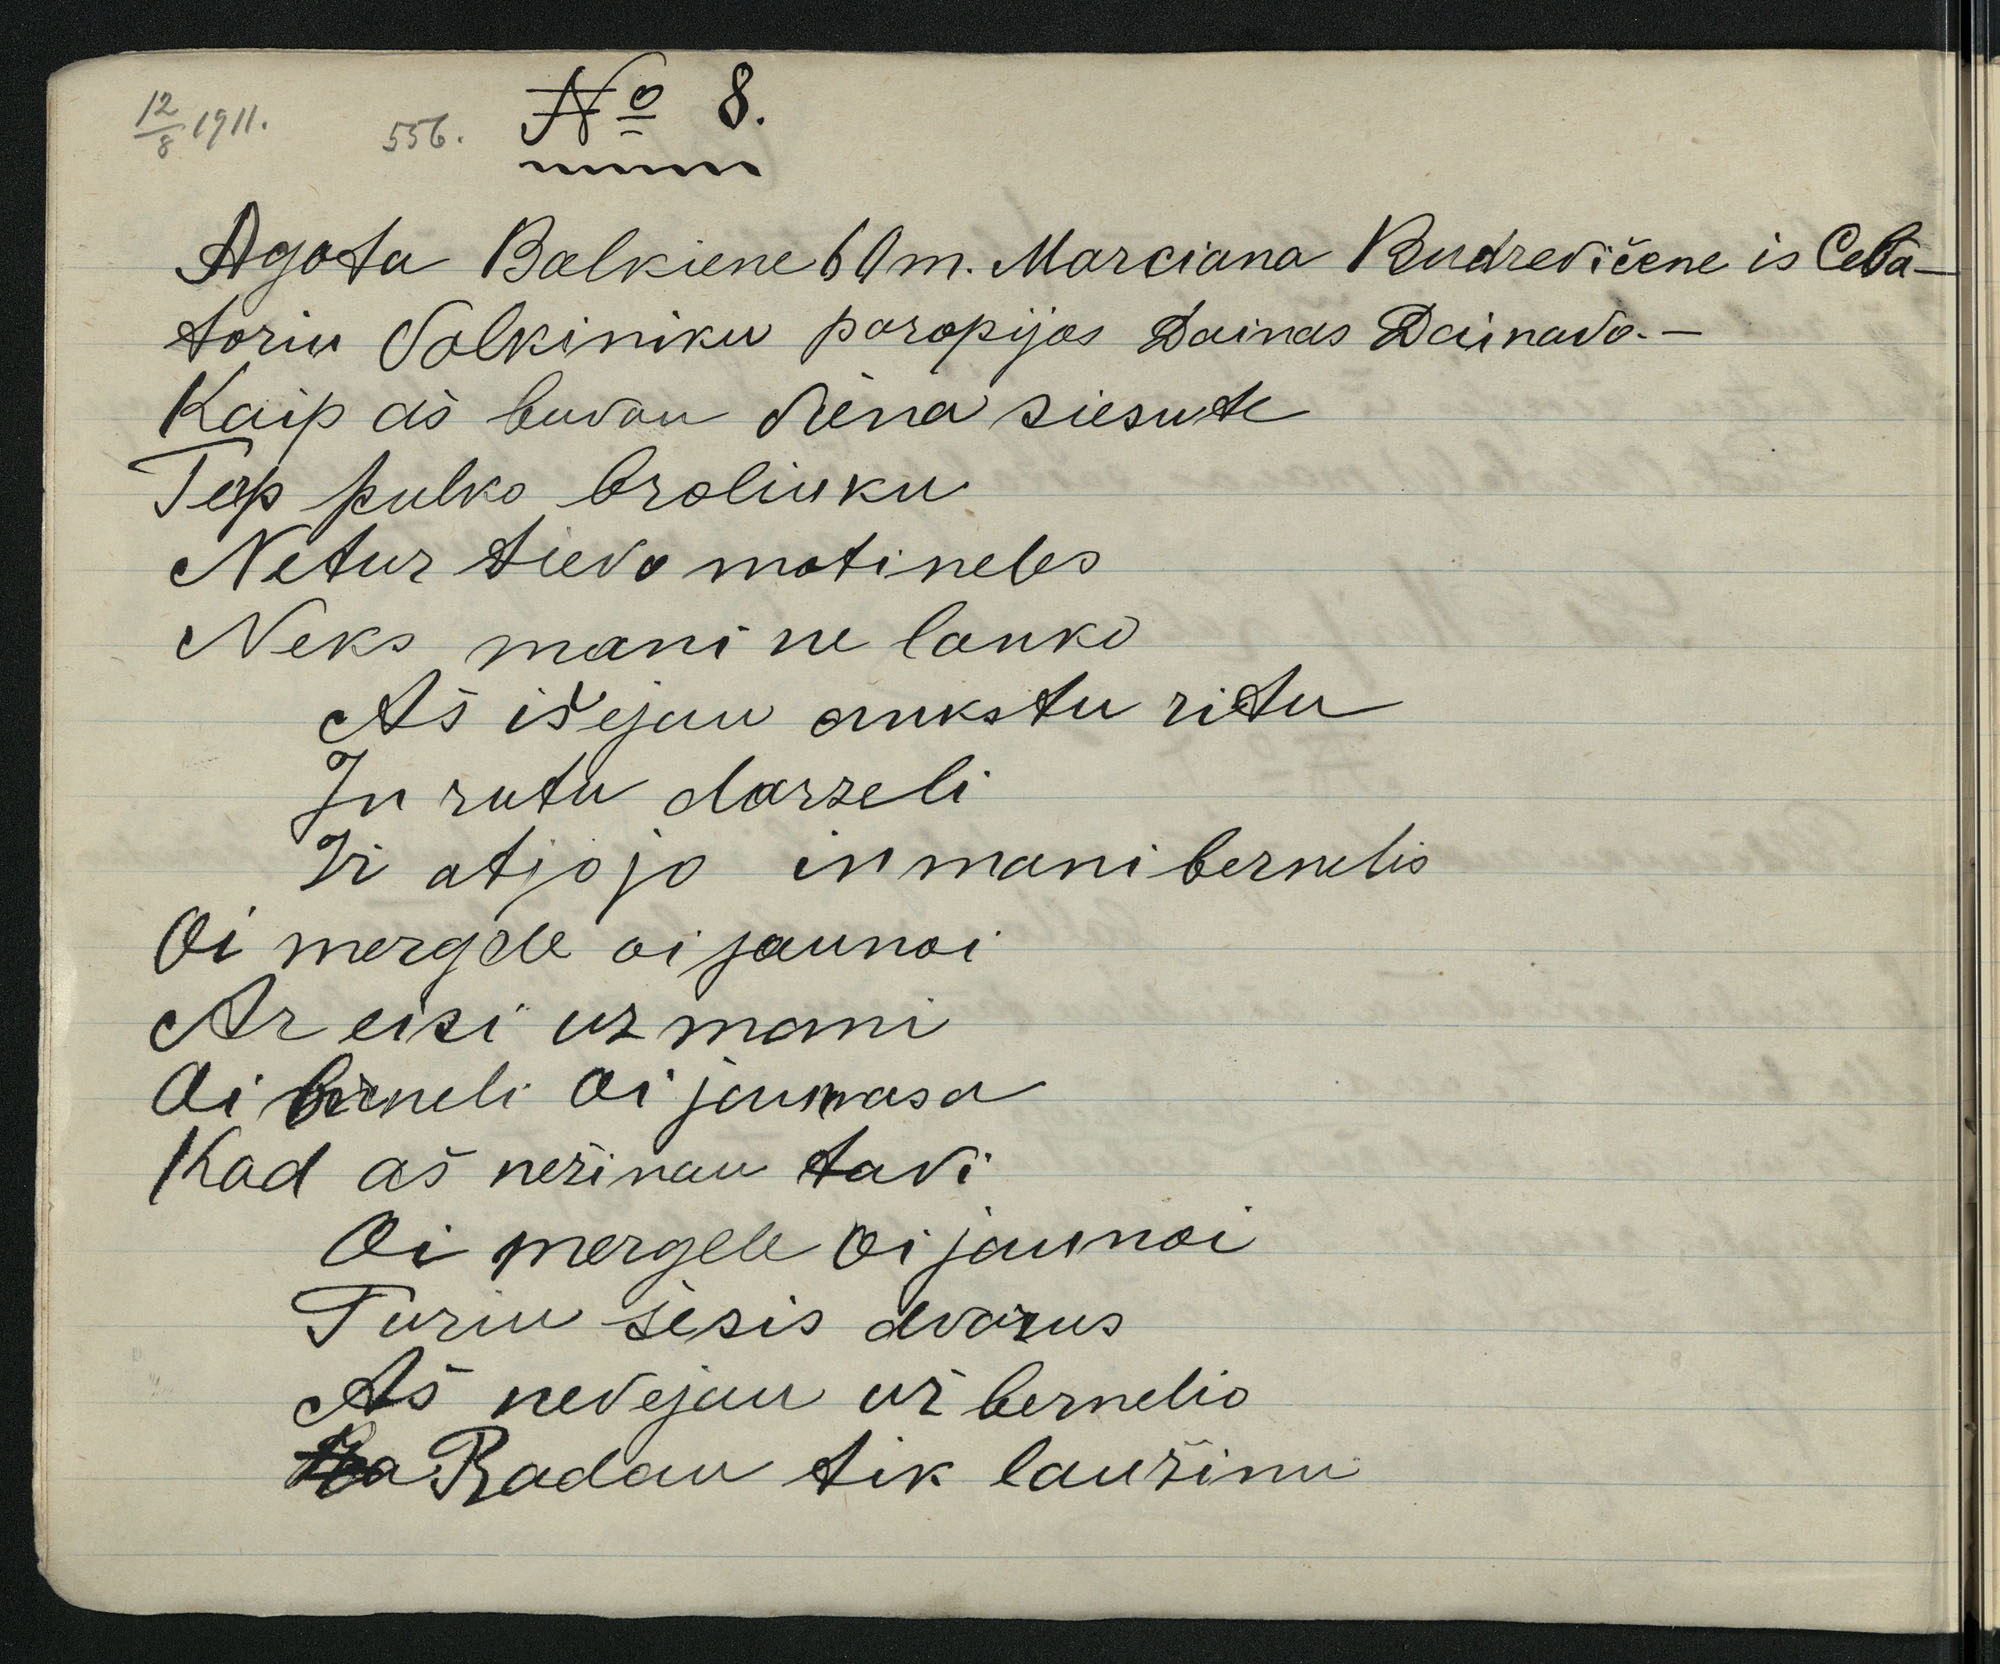 12/8 1911. 556. № 8.
Agota Balkiene 60 m. Marciana Budrevičene is Ceba-
toriu Valkiniku parapijos Dainas Dainavo.—
Kaip aš buvau viena siesute
Terp pulko broliuku
Netur tievo motineles
Neks mani ne lanko
Aš išejau ankstu ritu
In rutu darzeli
Ir atjojo in mani bernelis
Oi mergele oi jaunoi
Ar eisi uz mani
Oi berneli Oi jaunasa
Kad aš nežinau tavi
Oi mergele Oi jaunoi
Turiu šesis dvarus
Aš nevejau už bernelio
Radau tik laužinu